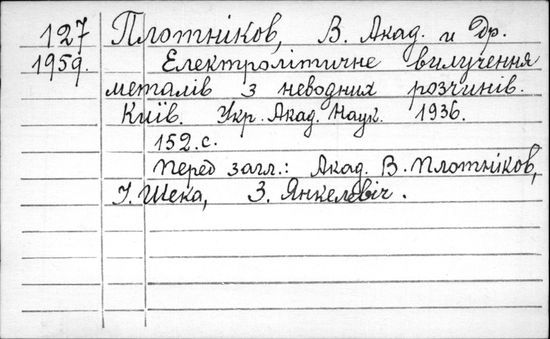 127 Плотніков, В. Акад. и Др.
1959. Електролітичне вилучення
металів з неводних розчинів.
Київ. Укр. Акад. Наук. 1936.
152.с.
Перед загл.: Акад. В. Плотніков,
І. Шека, З. Янкелевіч.